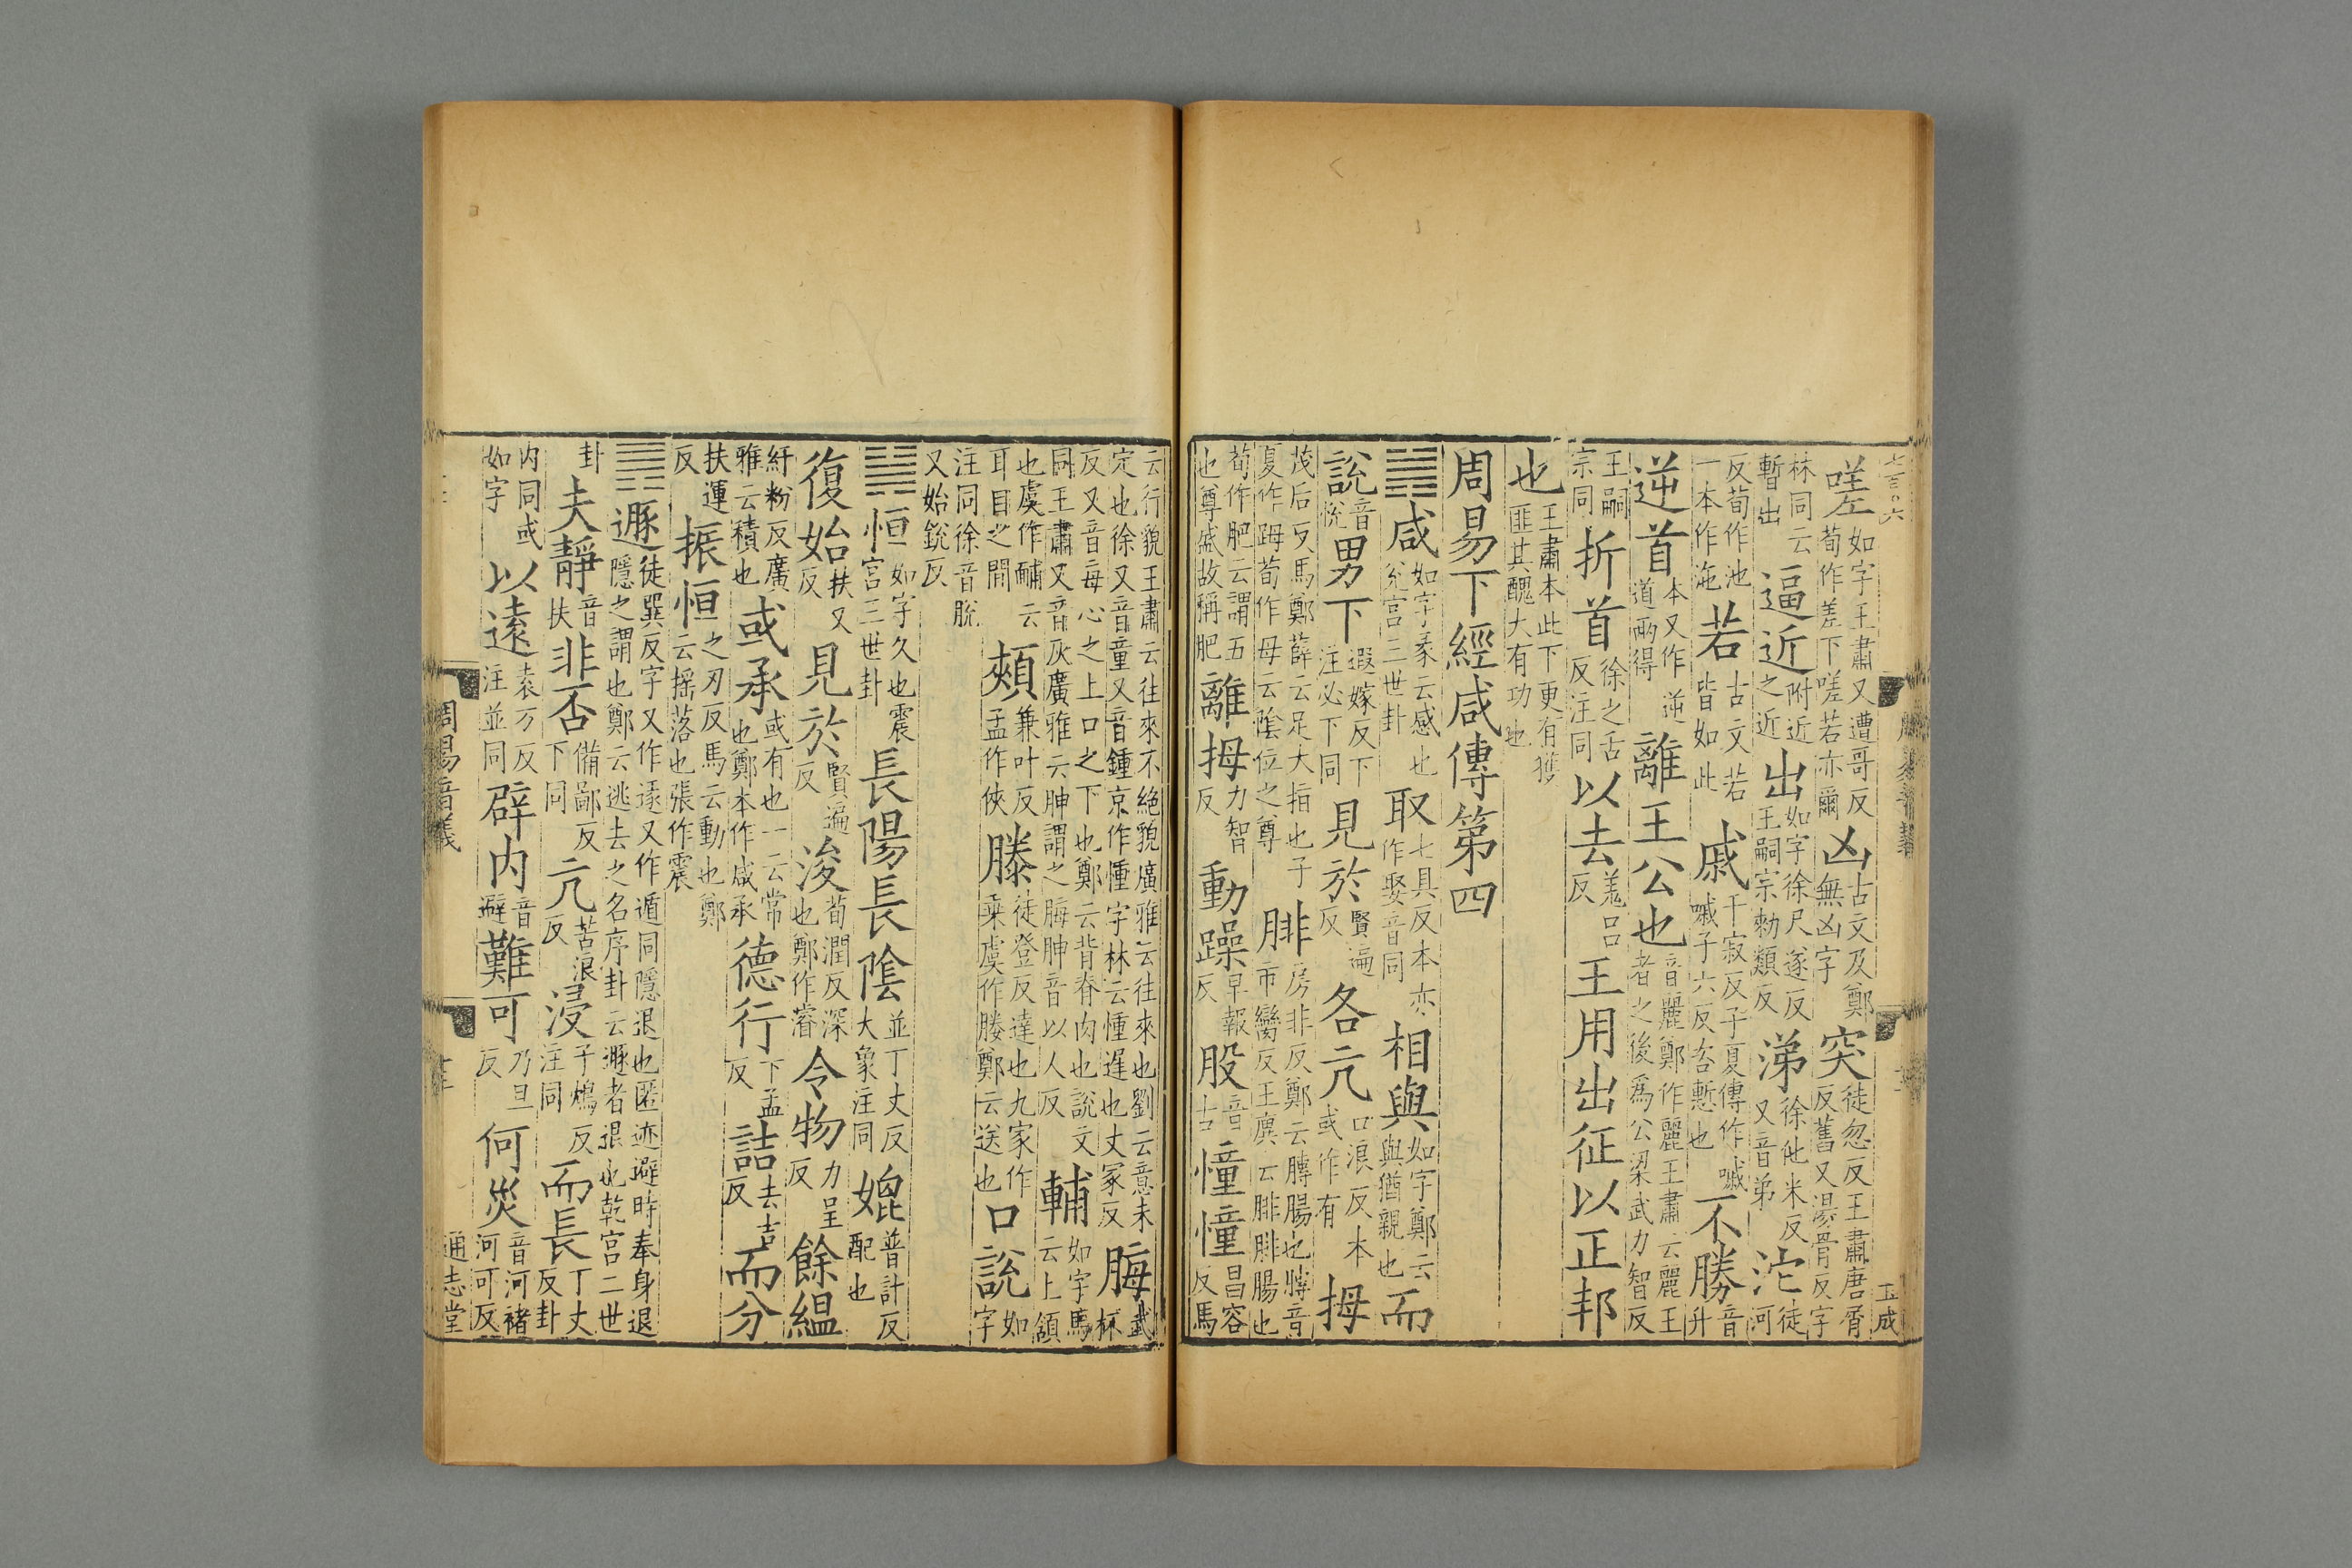 嗟如字王肅又遭哥反荀作差下嗟若亦爾凶古文及鄭無凶字突徒忽反王肅唐屑反舊又湯骨反字
林同云暫出逼近附近之近出如字徐尺遂反王嗣宗勑類反涕徐他米反又音弟沱徒河
反荀作池一本作沲若古文若皆如此戚千寂反子夏傳作嘁嘁子六反咨慙也不勝音升
逆首本又作逆道兩得離王公也音麗鄭作麗王肅云麗王者之後爲公梁武力智反
王嗣宗同折首徐之舌反注同以去羌呂反王用出征以正邦
也王肅本此下更有獲匪其醜大有功也
周易下經咸傳第四
䷞咸如字彖云感也兊宮三世卦取七具反本亦作娶音同相與如字鄭云與猶親也而
說音悅男下遐嫁反下注必下同見於賢遍反各亢口浪反本或作有拇
茂后反馬鄭薛云足大指也子夏作䟦荀作母云陰位之尊腓房非反鄭云膊腸也膊音市臠反王廙云腓腓腸也
荀作肥云謂五也尊盛故稱肥離拇力智反動躁早報反股音古憧憧昌容反馬
云行貌王肅云往來不絕貌廣雅云往來也劉云意未定也徐又音童又音鍾京作㥖字林云㥖遲也丈冢反脢武杯
反又音每心之上口之下也鄭云背脊肉也說文同王肅又音灰廣雅云胂謂之脢胂音以人反輔如字馬云上頷
也虞作䩉云耳目之間頰兼叶反孟作俠滕徒登反達也九家作乗虞作媵鄭云送也口說如字
注同徐音脫又始銳反
䷟恒如字久也震宮三世卦長陽長陰並丁丈反大象注同媲普計反配也
復始扶又反見於賢遍反浚荀潤反深也鄭作濬令物力呈反餘緼
紆粉反廣雅云積也或承或有也一云常也鄭本作咸承德行下孟反詰去吉反而分
扶運反振恒之刃反馬云動也鄭云揺落也張作震
䷠遯徒巽反字又作遂又作遁同隱退也匿迹避時奉身退隱之謂也鄭云逃去之名序卦云遯者退也乾宮二世
卦夫靜音扶非否備鄙反下同亢苦浪反浸子鴆反注同而長丁丈反卦
内同或如字以遠袁万反注並同辟内音避難可乃旦反何災音河褚河可反
周易音義
通志堂